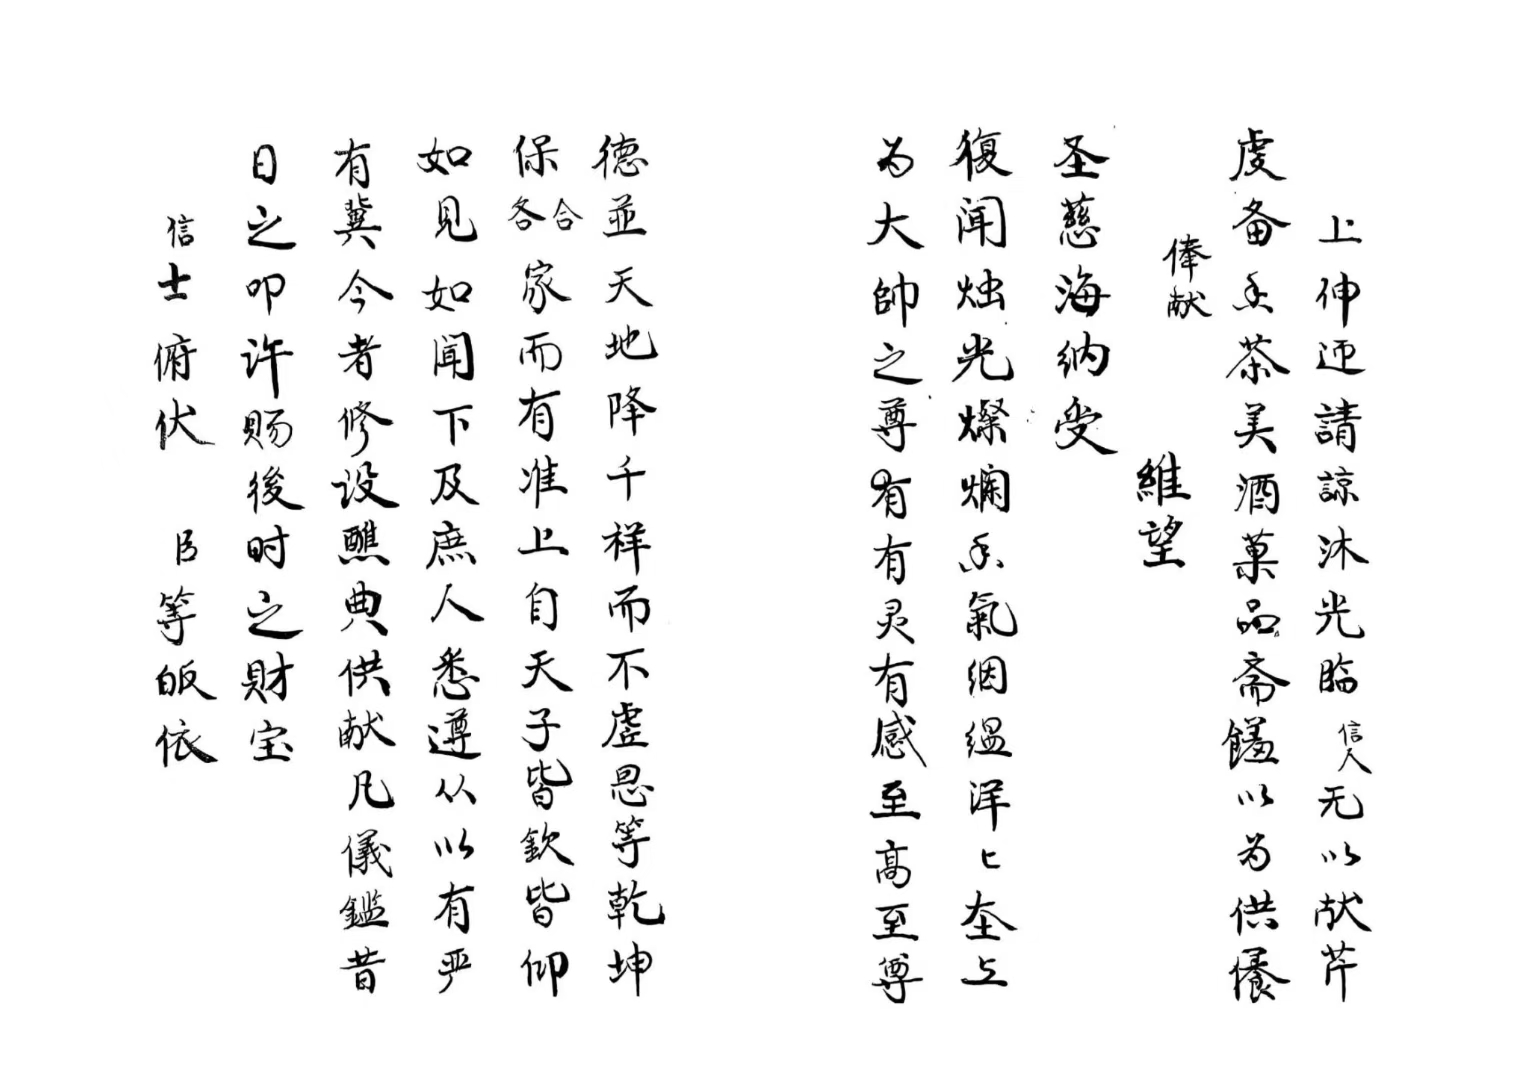 上伸迎請諒沐光臨信人无以献芹
虔备香茶美酒菓品斋饈以为供養
俸献
維望
圣慈海纳受
復闻烛光燦爛香氣絪縕洋匕在上
为大帥之尊有有灵有感至高至尊
德並天地降千祥而不虚恩等乾坤
保各合家而有准上自天子皆欽皆仰
如見如闻下及庶人悉遵从以有严
有冀今者修设醮典供献凡儀鑑昔
日之叩许赐後时之财宝
信士俯伏 臣等皈依